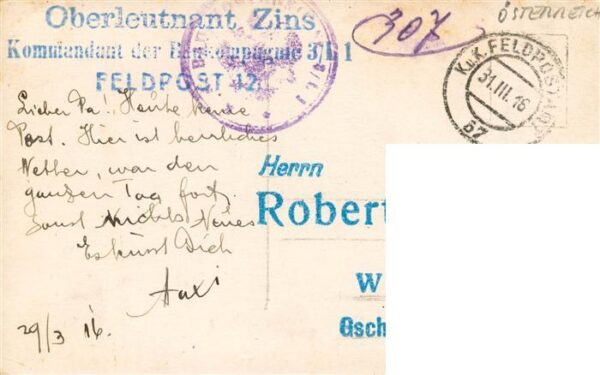 Oberleutnant Zins
Kommandant der Baukompagnie 3/L 1
FELDPOST 12
307
ÖSTERREICH
K.u.K. FELDPOSTAMT
31.III.16
Lieber Pa! Heute keine
Post. Hier ist herrliches
Wetter, war den
ganzen Tag fort.
Sonst nichts Neues
Es küsst Dich
29/3 16.
Herrn
Robert
W
Gsch